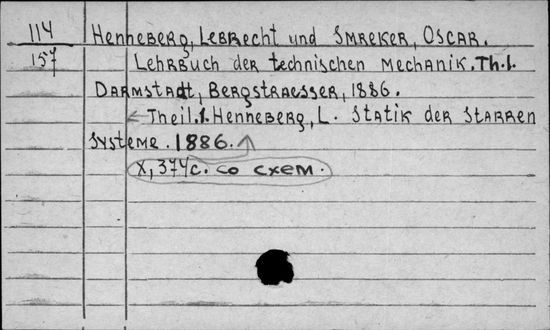 114 Henneberg, Lebrecht und Smreker, Oscar.
157 Lehrbuch der technischen Mechanik. Th.1.
Darmstadt, Bergstraesser, 1886.
← Theil.1. Henneberg, L. Statik der starren
Systeme. 1886.
X, 374c. со схем.